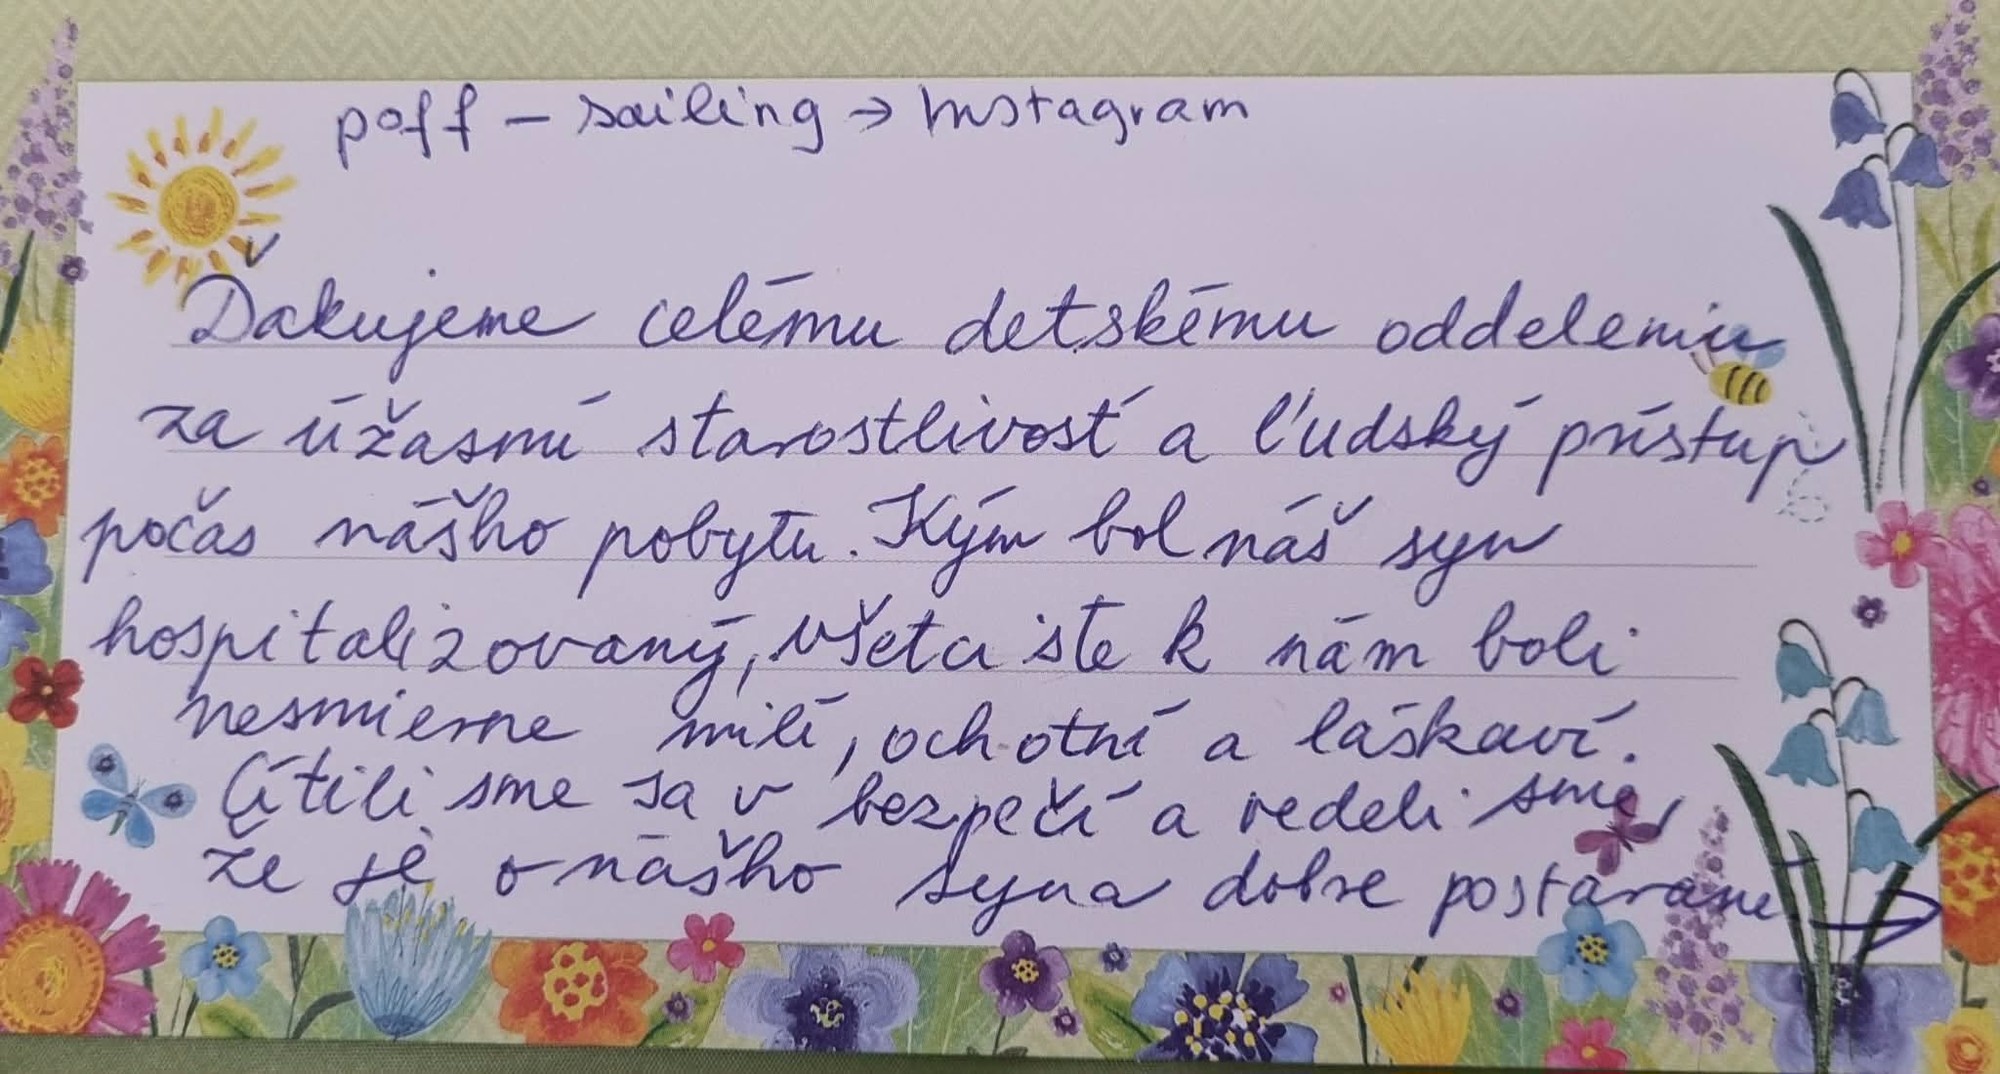 poff - sailing → Instagram
Ďakujeme celému detskému oddeleniu
za úžasnú starostlivosť a ľudský prístup
počas nášho pobytu. Kým bol náš syn
hospitalizovaný, všetci ste k nám boli
nesmierne milí, ochotní a láskaví.
Cítili sme sa v bezpečí a vedeli sme,
že je o nášho syna dobre postarané →